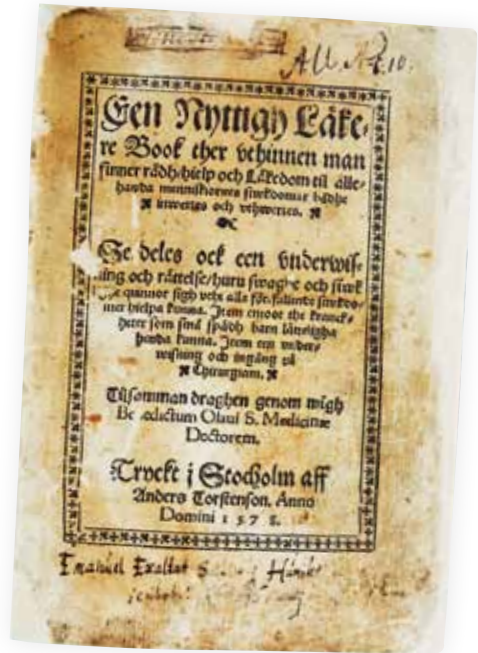 All. N 10.
Een Nyttigh Läke-
re Book ther vthinnen man
finner rådh/hielp och Läkedom til alle-
handa menniskiornes siwkdomar bådhe
inwertes och vthwertes.
Se deles ock een vnderwis-
ning och rättelse/huru swaghe och siwk
quinnor sigh vthi alla för fallande siwkdo-
mer hielpa kunna. Item emoot the kranck-
heter som små spädh barn
henda kunna. Item een vnder-
wisning och ingång til
Chirurgiam.
Tilsamman draghen genom migh
Be edictum Olaui S. Medicinæ
Doctorem.
Tryckt i Stocholm aff
Anders Torstenson. Anno
Domini 1578.
Emanuel